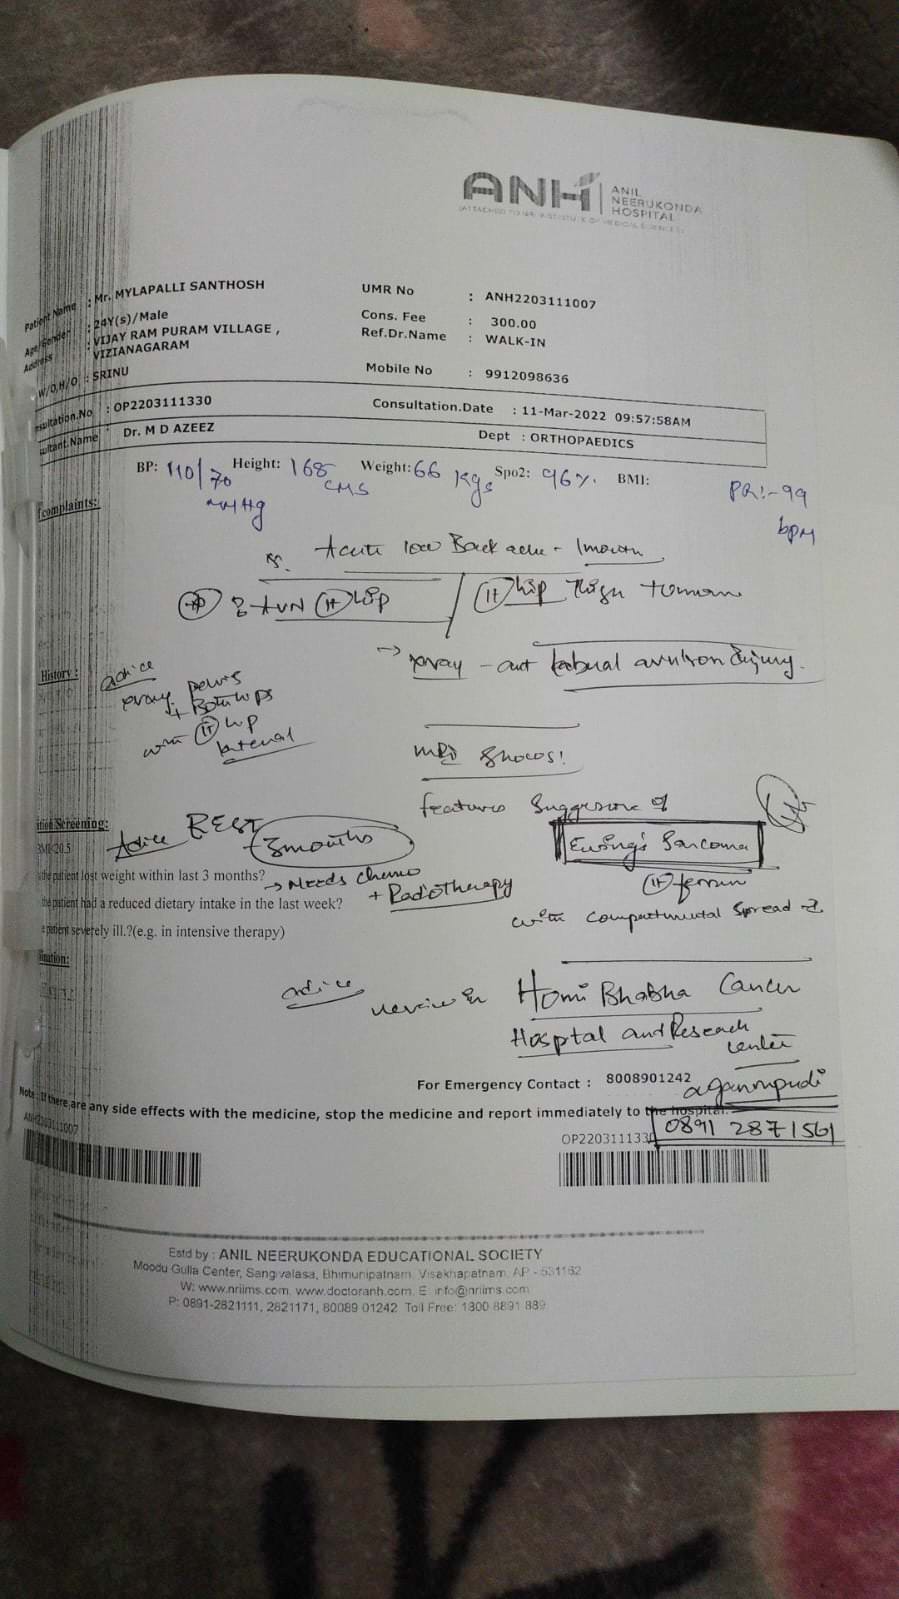 ANH
ANIL
NEERUKONDA
HOSPITAL
Patient Name : Mr. MYLAPALLI SANTHOSH
UMR No : ANH2203111007
Age/Gender : 24Y(s)/Male
Cons. Fee : 300.00
Address : VIJAY RAM PURAM VILLAGE ,
VIZIANAGARAM
Ref.Dr.Name : WALK-IN
W/O,H/O : SRINU
Mobile No : 9912098636
nsultation.No : OP2203111330
Consultation.Date : 11-Mar-2022 09:57:58AM
sultant.Name : Dr. M D AZEEZ
Dept : ORTHOPAEDICS
BP: 110/70 mmHg Height: 168 CMS Weight: 66 Kgs Spo2: 96% BMI:
PR:- 99 bpm
complaints:
Acute low Back ache - 1 month
AVN hip / hip thigh
→ xray - avulsion injury.
History :
advice
xray pelvis
+ Both hips
with hip
lateral
MRI Shows!
features Suggestive of
Ewing's Sarcoma
femur
with compartmental spread
ition Screening:
Advice REST - 3 months
BMI<20.5
s the patient lost weight within last 3 months?
→ Needs chemo
+ Radiotherapy
the patient had a reduced dietary intake in the last week?
e patient severely ill.?(e.g. in intensive therapy)
ination:
advice
review in Homi Bhabha Cancer
Hospital and Research
center
aganampudi
For Emergency Contact : 8008901242
Note : If there are any side effects with the medicine, stop the medicine and report immediately to the hospital.
0891 2871561
ANH2203111007
OP2203111330
Estd by : ANIL NEERUKONDA EDUCATIONAL SOCIETY
Moodu Gulla Center, Sangivalasa, Bhimunipatnam, Visakhapatnam, AP - 531162
W: www.nriims.com, www.doctoranh.com, E: info@nriims.com
P: 0891-2821111, 2821171, 80089 01242 Toll Free: 1800 8891 889